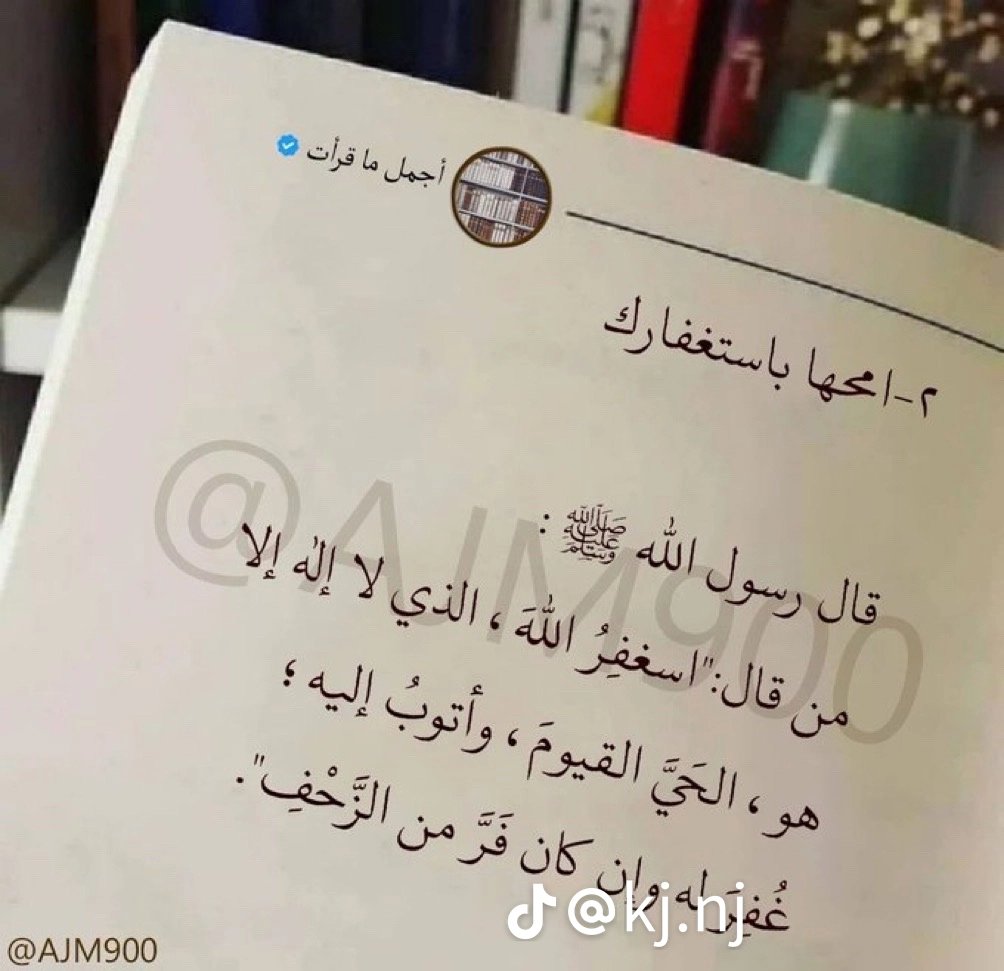 أجمل ما قرأت
٢-امحها باستغفارك
قال رسول الله ﷺ :
من قال:"اسغفِرُ اللهَ ، الذي لا إلٰه إلا
هو ، الحَيَّ القيومَ ، وأتوبُ إليه ؛
غُفِرَ له وإن كان فَرَّ من الزَّحْفِ".
@AJM900
@kj.nj
@AJM900